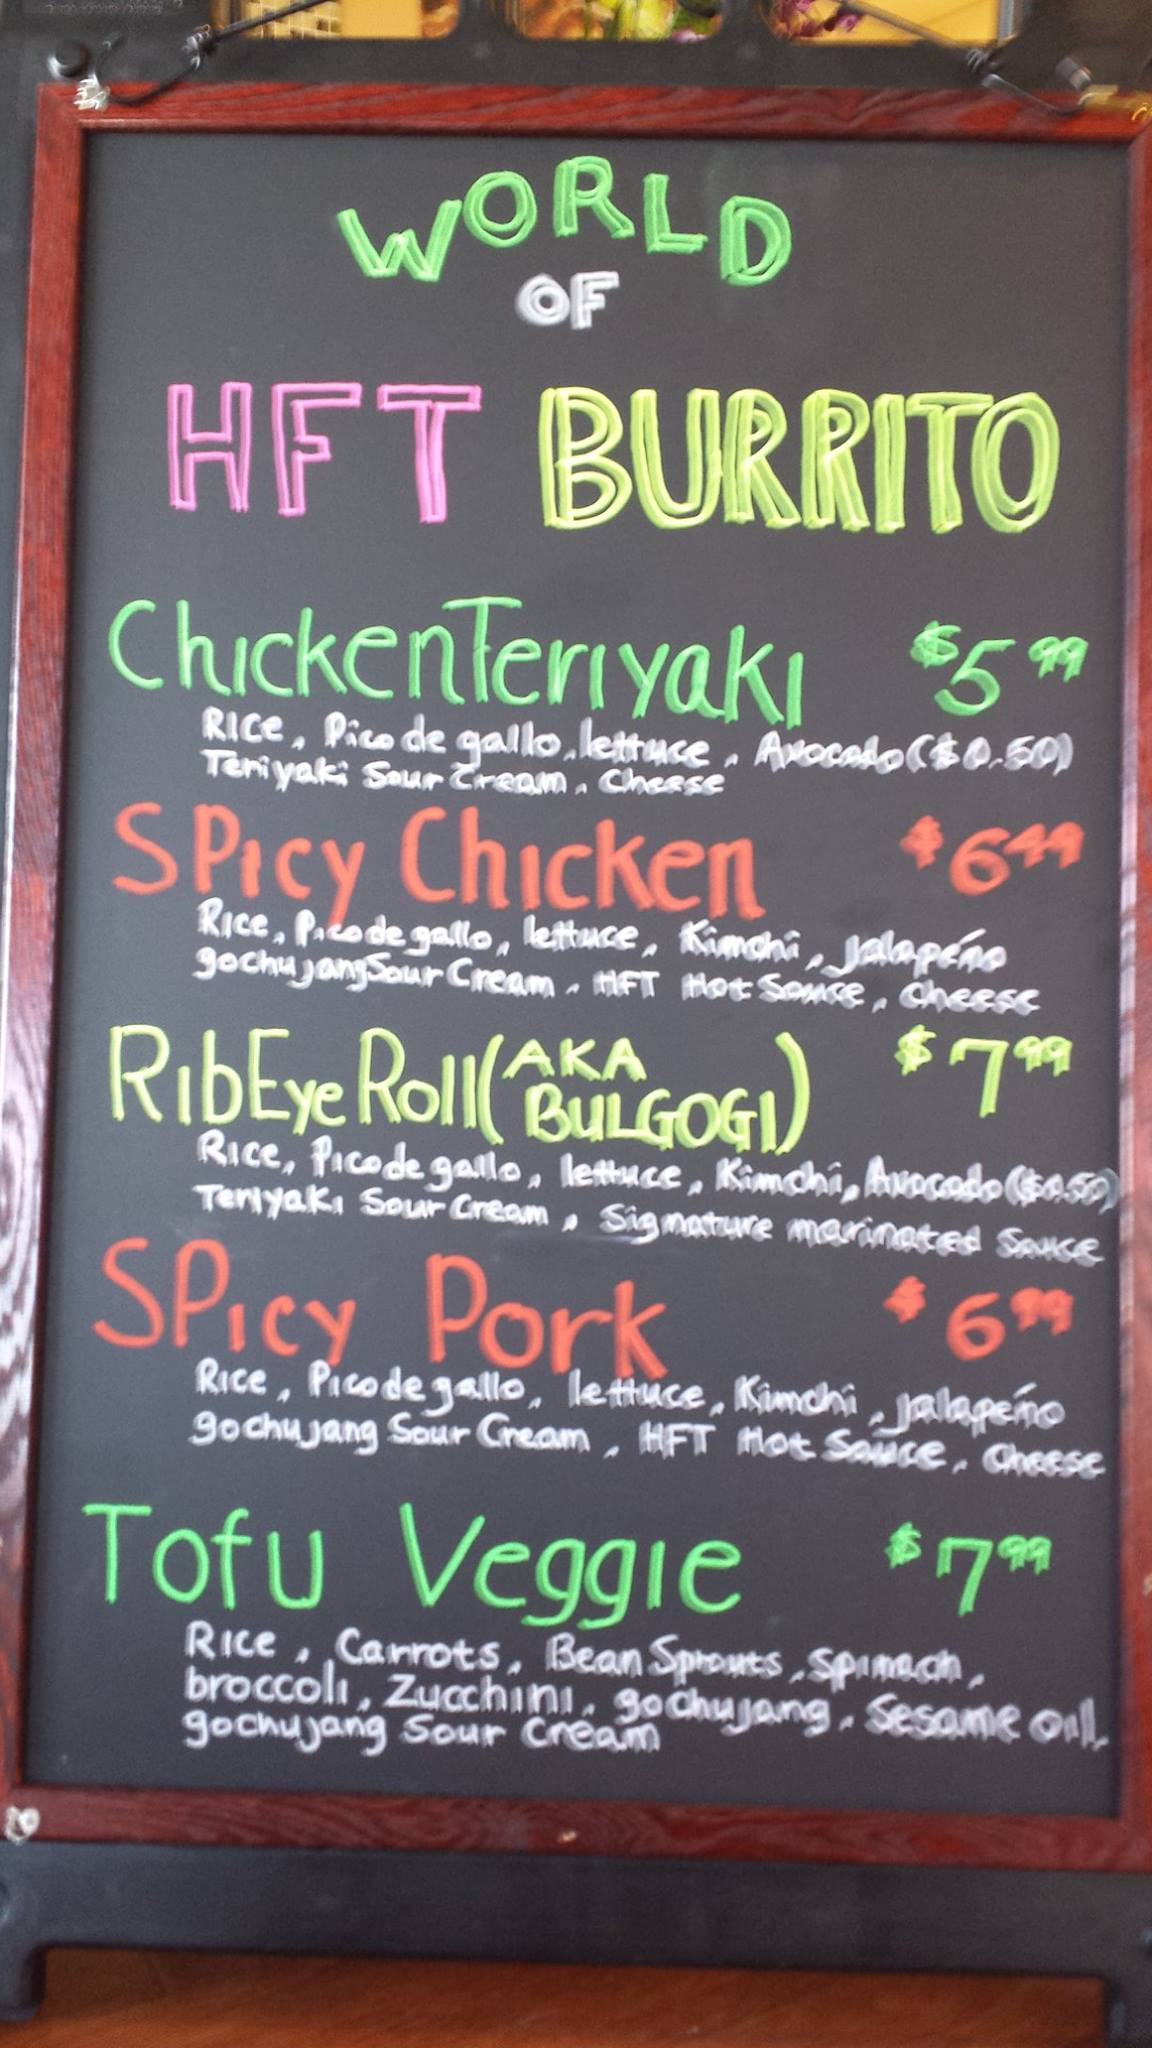 WORLD
OF
HFT BURRITO
Chicken Teriyaki $5.99
Rice, Pico de gallo, lettuce, Avocado ($0.50)
Teriyaki Sour Cream, Cheese
Spicy Chicken $6.49
Rice, Pico de gallo, lettuce, Kimchi, jalapéno
gochujang Sour Cream, HFT Hot Sauce, Cheese
RibEye Roll (AKA BULGOGI) $7.99
Rice, Pico de gallo, lettuce, Kimchi, Avocado ($0.50)
Teriyaki Sour Cream, Signature marinated Sauce
Spicy Pork $6.99
Rice, Pico de gallo, lettuce, Kimchi, jalapéno
gochujang Sour Cream, HFT Hot Sauce, Cheese
Tofu Veggie $7.99
Rice, Carrots, Bean Sprouts, Spinach,
broccoli, Zucchini, gochujang, Sesame oil,
gochujang Sour Cream